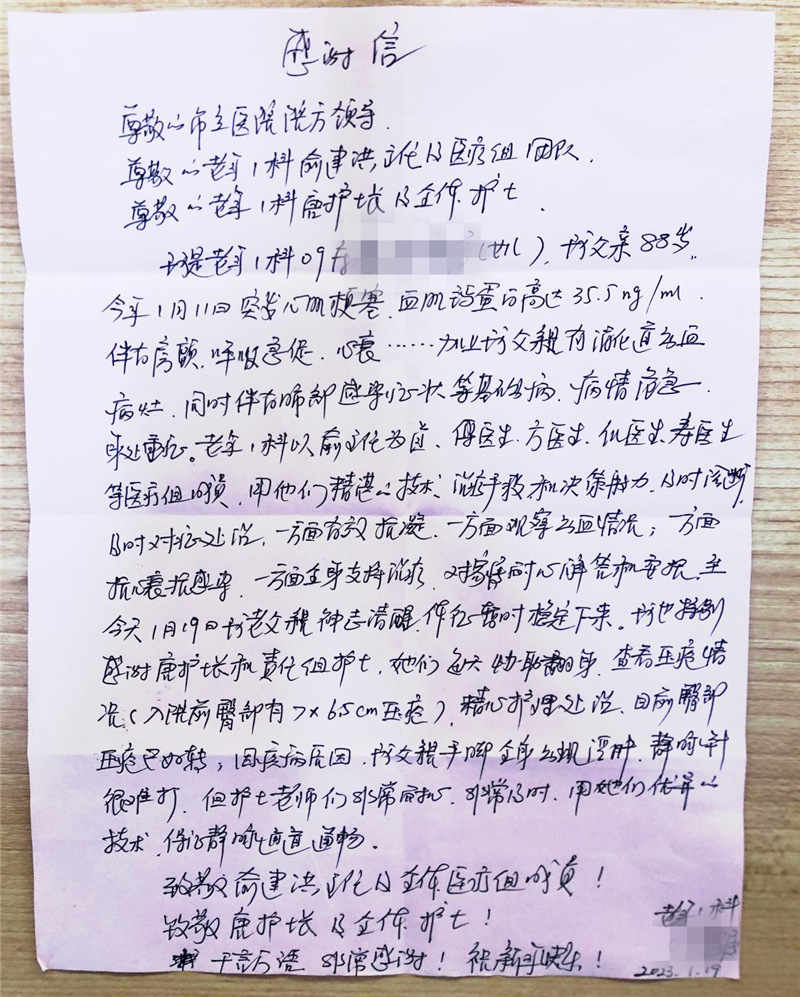 感谢信
尊敬的市立医院院方领导.
尊敬的老年1科俞建洪主任及医疗组团队.
尊敬的老年1科唐护士长及全体护士.
我是老年1科09床 (女儿), 我父亲88岁.
今年1月11日突发心肌梗塞.血肌钙蛋白高达35.5ng/ml.
伴有房颤.呼吸急促.心衰……加业我父亲有消化道出血
病灶.同时伴有肺部感染症状等基础病.病情危急
身处重症。老年1科以俞主任为首.傅医生.方医生.仇医生.寿医生
等医疗组成员.用他们精湛的技术.治疗手段和决策能力.及时诊断
及时对症处治.一方面有效抗凝.一方面观察出血情况;一方面
抗心衰抗感染.一方面全身支持治疗.对家属耐心解答和安抚.至
今天1月19日我老父亲神志清醒.体征暂时稳定下来。我也特别
感谢唐护士长和责任组护士.她们每天协助翻身.查看压疮情
况(入院前臀部有7×6.5cm压疮).精心护理处治.目前臀部
压疮已好转;因疾病原因.我父亲手脚全身出现浮肿.静脉针
很难打.但护士老师们非常耐心.非常及时.用她们优异的
技术.保证静脉通道通畅.
致敬俞建洪主任及全体医疗组成员!
致敬唐护士长及全体护士!
千言万语 非常感谢!祝新年快乐!
老年1科
2023.1.19